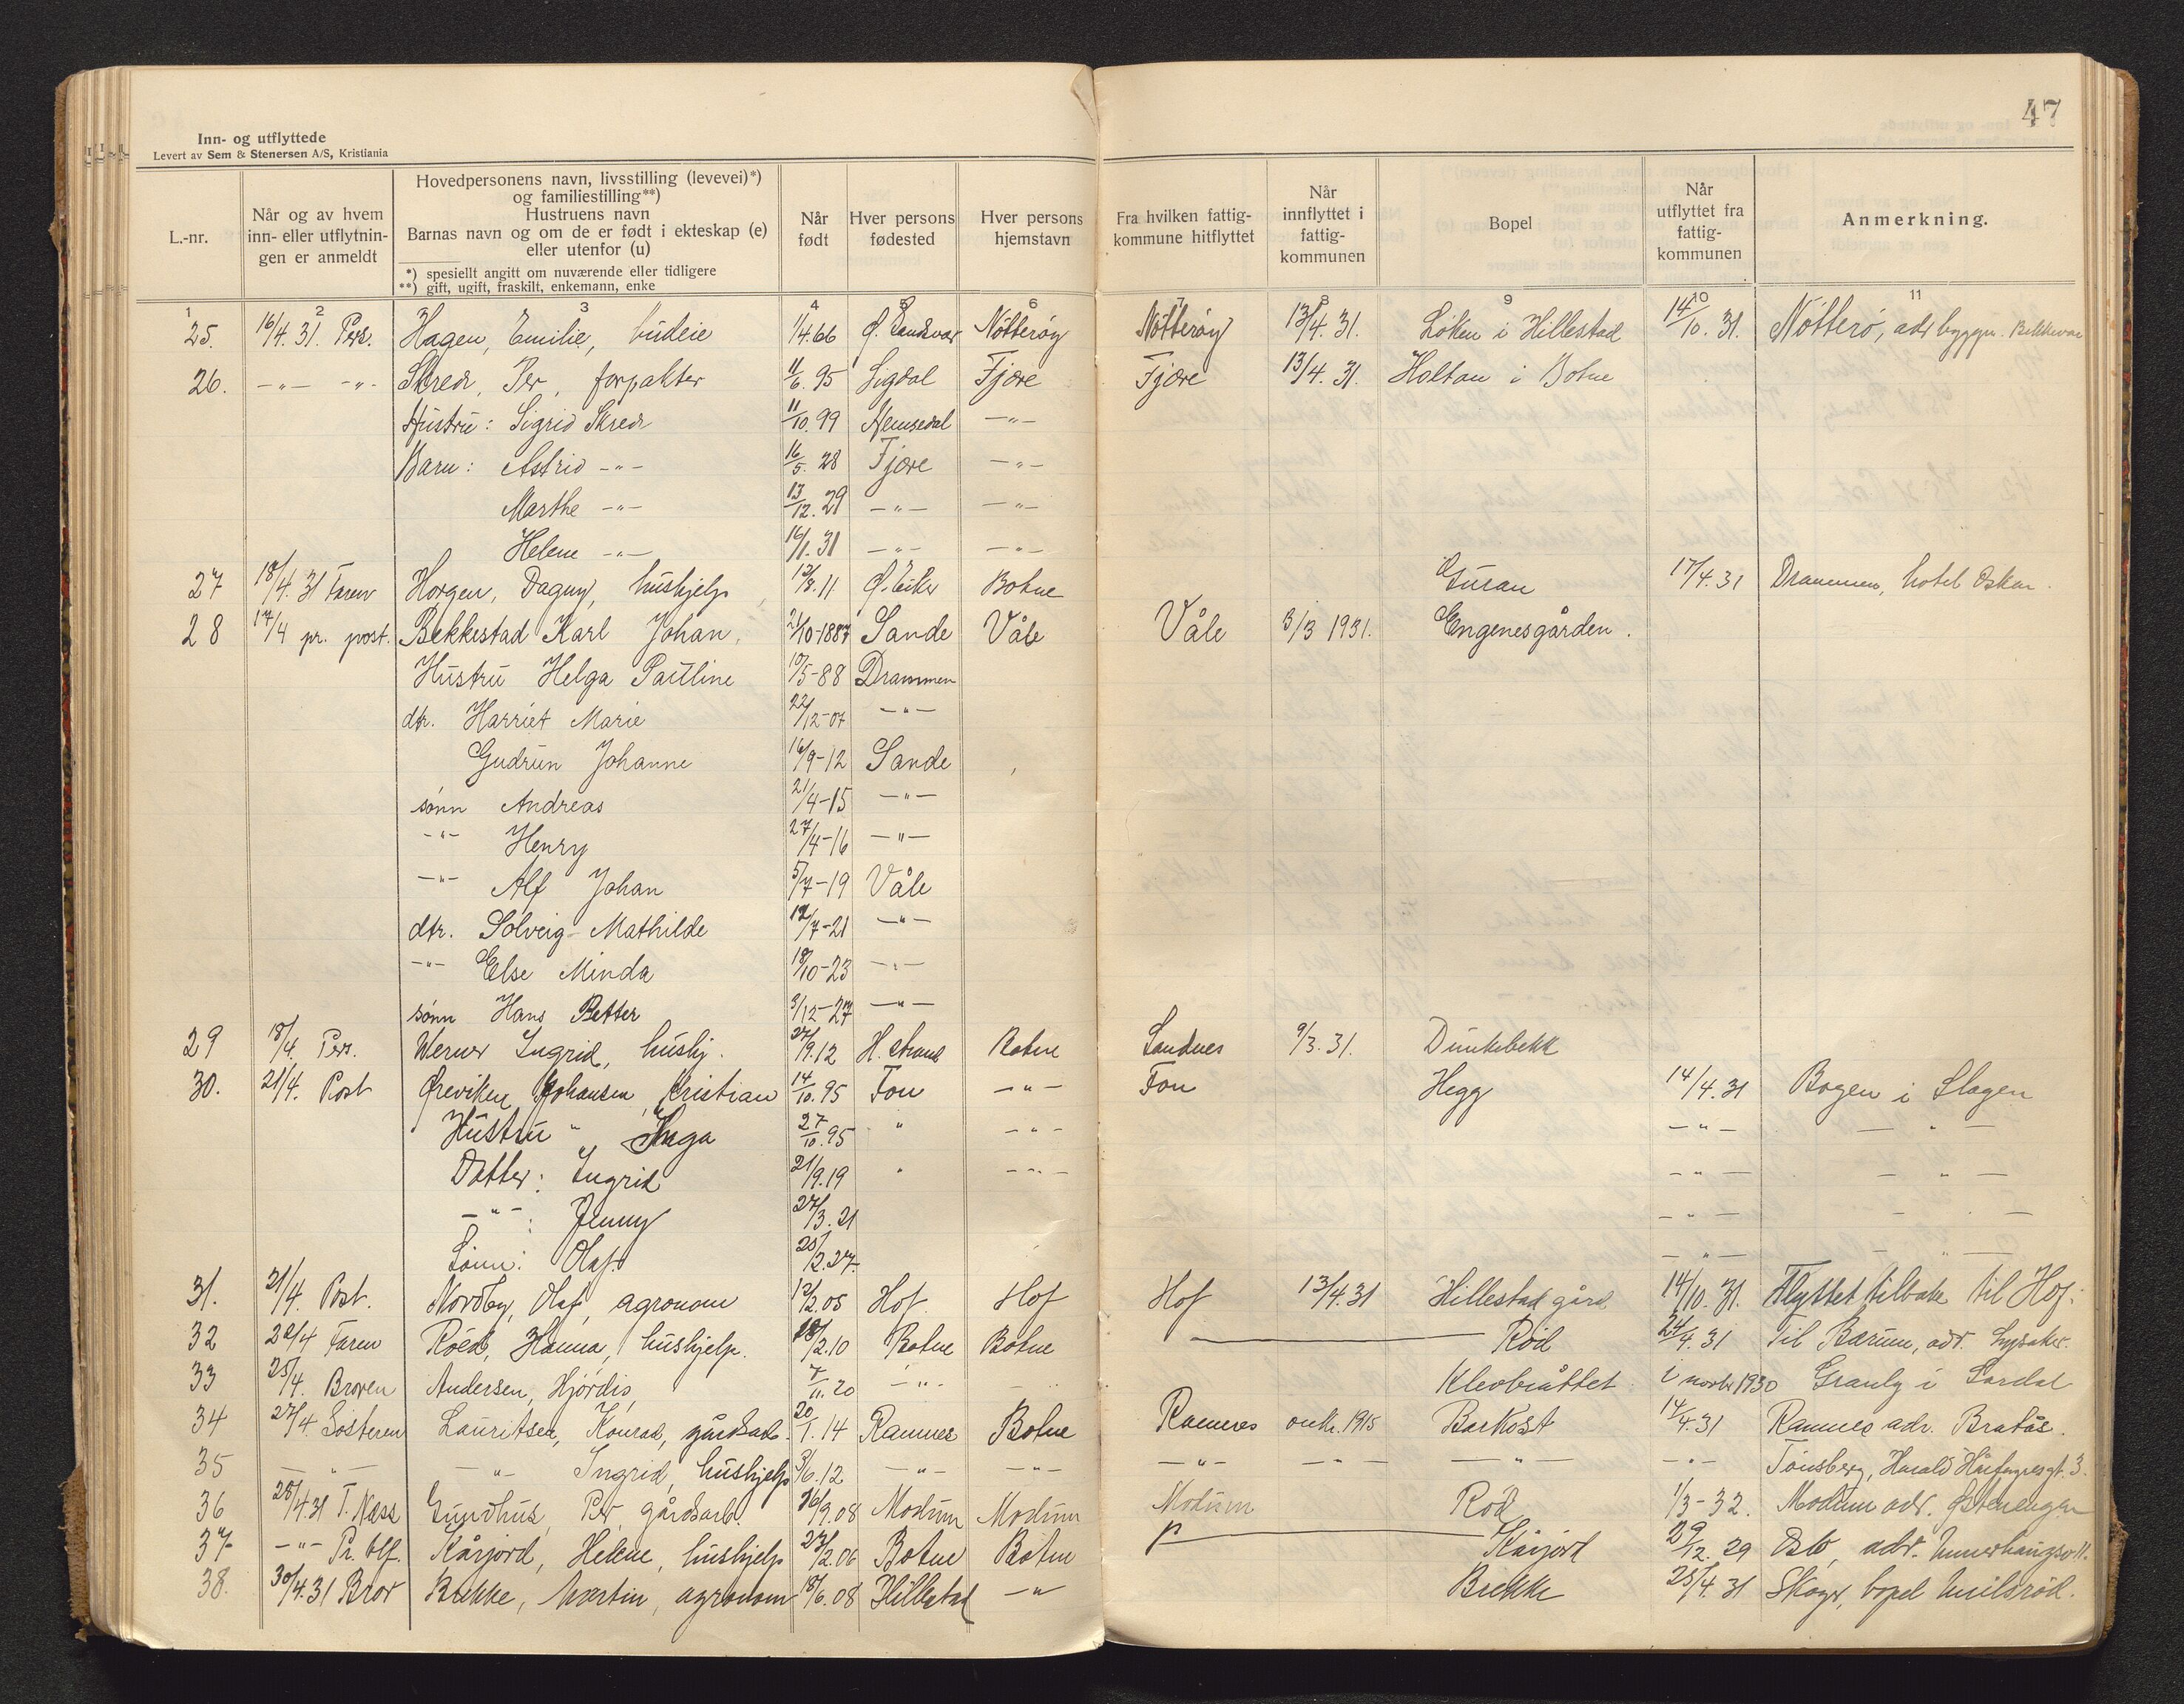 47
Inn- og utflyttede
Levert av Sem & Stenersen A/S, Kristiania
L.-nr.
Når og av hvem inn- eller utflytnin-gen er anmeldt
Hovedpersonens navn, livsstilling (levevei)*)
og familiestilling**)
Hustruens navn
Barnas navn og om de er født i ekteskap (e)
eller utenfor (u)
*) spesiellt angitt om nuværende eller tidligere
**) gift, ugift, fraskilt, enkemann, enke
Når født
Hver persons fødested
Hver persons hjemstavn
Fra hvilken fattig-kommune hitflyttet
Når innflyttet i fattig-kommunen
Bopel
Når utflyttet fra fattig-kommunen
Anmerkning.
1 2 3 4 5 6 7 8 9 10 11
25. 16/4. 31. Pers. Hagen, Emilie, budeie 1/4.66 Ø. Sandsvær Nøtterøy Nøtterøy 13/4. 31. Løken i Hillestad 14/10. 31. Nøtterø, adr byggm.
26. -"- -"- Skred, Per, forpakter 11/6. 95 Sigdal Fjære Fjære 13/4. 31. Holtan i Botne
Hustru: Sigrid Skred 11/10. 99 Hemsedal -"-
Barn: Astrid -"- 16/5. 28 Fjære -"-
Marthe -"- 13/12. 29 -"- -"-
Helene -"- 16/1. 31 -"- -"-
27 18/4. 31 Faren Horgen, Dagny, hushjelp 13/8. 11 Ø. Eiker Botne Guran 17/4. 31 Drammen, hotel Oskar.
28 17/4 pr. post. Bekkestad Karl Johan, 21/10-1887 Sande Våle Våle 3/3 1931. Engenesgården.
Hustru Helga Pauline 10/5-88 Drammen
dtr. Harriet Marie 22/12-07 -"-
Gudrun Johanne 16/9-12 Sande
sønn Andreas 21/4-15 -"-
-"- Henry 27/4-16 -"-
-"- Alf Johan 5/7-19 Våle
dtr. Solveig Mathilde 12/7-21 -"-
-"- Else Minda 18/10-23 -"-
sønn Hans Petter 3/12-27 -"-
29 18/4. Pers. Werner Ingrid, hushj. 27/9.12 H.strand Botne Sandnes 9/3. 31. Dunkebekk
30. 21/4. Post Øreviken Johansen, Kristian 14/10. 95 Fon -"- Fon Hegg 14/4. 31 Bogen i Slagen
Hustru " Inga 27/10. 95 " -"- -"- -"-
Datter: Ingrid 21/9.19 " -"- -"- -"-
-"-: Jenny 27/3. 21 -"- -"-
Sønn: Olaf. 25/2.27. -"- -"-
31. 21/4. Post. Nordby, Olaf, agronom 12/2.05 Hof. Hof Hof 13/4.31 Hillestad gård 14/10. 31. Flyttet tilbake til Hof.
32 22/4 Faren Röed, Hanna, hushjelp. 18/2.10 Botne Botne Röd 24/4. 31 Til Bærum, adr. Lysaker.
33 25/4. Broren Andersen, Hjördis, 7/11. 20 -"- i novbr 1930 Granly i Lardal
34 27/4. Søsteren Lauritsen, Konrad, gårdsarb. 20/1. 14 Ramnes Botne Ramnes omkr. 1915 Barkost 14/4.31 Ramnes adr. Bratås.
35 -"- -"- Ingrid, hushjelp 3/6.12 -"- -"- -"- -"- -"- -"- Tønsberg, Harald Hårfagresgt. 3.
36 28/4.31 T. Næss Gundhus, Per, gårdsarb. 26/9.08 Modum Modum Modum Röd 1/3-32. Modum adr. Østenengen
37 -"- Pr. tlf. Kårjord, Helene, hushjelp 23/2.06 Botne Botne Kårjord 29/12. 29 Oslo, adr.
38. 30/4.31 Bror Brekke, Martin, agronom 18/6.08 Hillestad -"- Brekke 25/4. 31 Skoger, bopel